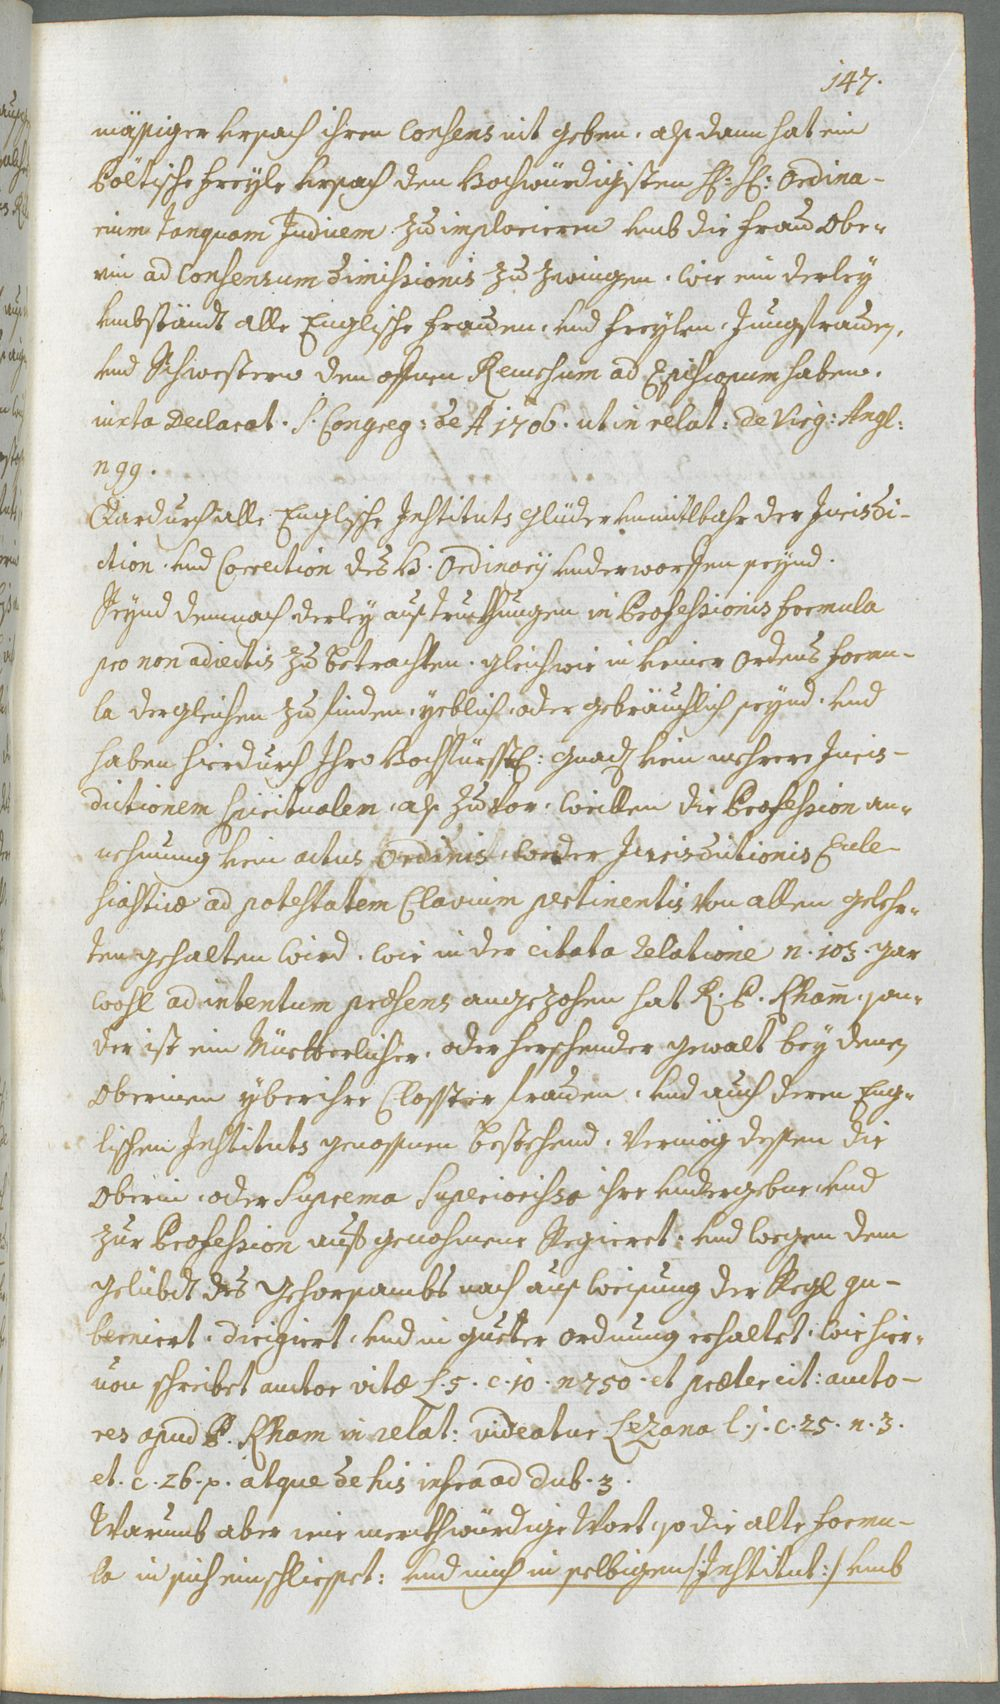 147.
mässiger ursach ihren Consens nit geben, alß dann hat ein
Pöltische freyle ursach den Hochwürdigisten H: H: Ordina-
rium tanquam Judicem zu implorieren umb die Frau Obe-
rin ad Consensum Dimissionis zu zwingen, wie ein derley
umbständt alle Englische frauen, und freylen, Jungfrauen,
und Schwestern den offnen Recursum ad Episcopum haben.
iuxta Declarat. S. Congreg: de A 1706. ut in relat: de Virg: Angl:
n 99.
Wardurch alle Englische Instituts glüder unmitlbahr der Jurisdi-
ction, und Correction des H. Ordinarij underworffen seynd.
Seynd demnach derley austruckhungen in Professionis formula
pro non adiectis zu betrachten, gleichwie in keiner ordens formu-
la dergleichen zu finden, yeblich, oder gebräuchlich seynd, und
haben hierdurch Ihro Hochfürstl: gnad kein mehrere Juris-
dictionem spiritualem, alß zuvor, weillen die Profession an-
nehmung kein actus Ordinis, weder Jurisdictionis Eccle-
siasticæ ad potestatem Clavium pertinentis von allen gelehr-
ten gehalten wird, wie in der citata relatione n. 103. gar
wohl ad intentum præsens angezohen hat R. P. Kham, son-
der ist ein Müetterlicher, oder herschender gewalt bey denen
Oberinen yber ihre Closster frauen, und auch deren Eng-
lischen Instituts genossnen bestehend, Vermög dessen die
Oberin, oder Suprema Superiorissa ihre undergebne, und
zur Profession auß genohmene Regieret, und wegen dem
gelübdt des gehorsambs nach ausweisung der Regl gu-
berniert, dirigiert, und in gutter ordnung erhaltet, wie hier-
von schreibet auctor vitæ L. 5. c. 10. n 750. et præter cit: aucto-
res apud P. Kham in relat: videatur Lezana l. j. c. 25. n. 3.
et. c. 26. p. atque de his infra ad dub. 3.
Warumb aber nie merckhwürdige Wort, so die alte formu-
la in sich einschliesset: und mich in selbigen /: Institut :/ umb